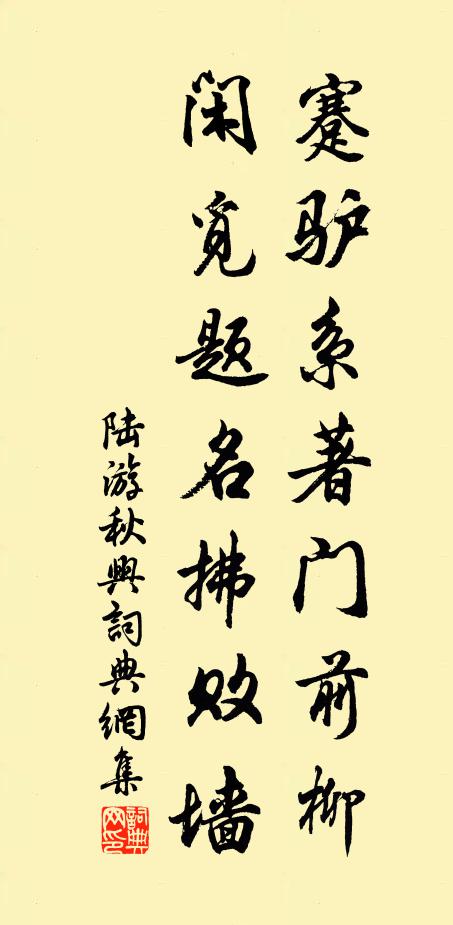 蹇驴系著门前柳
闲觅题名拂败墙
陆游秋興詞典網集
詞典网印